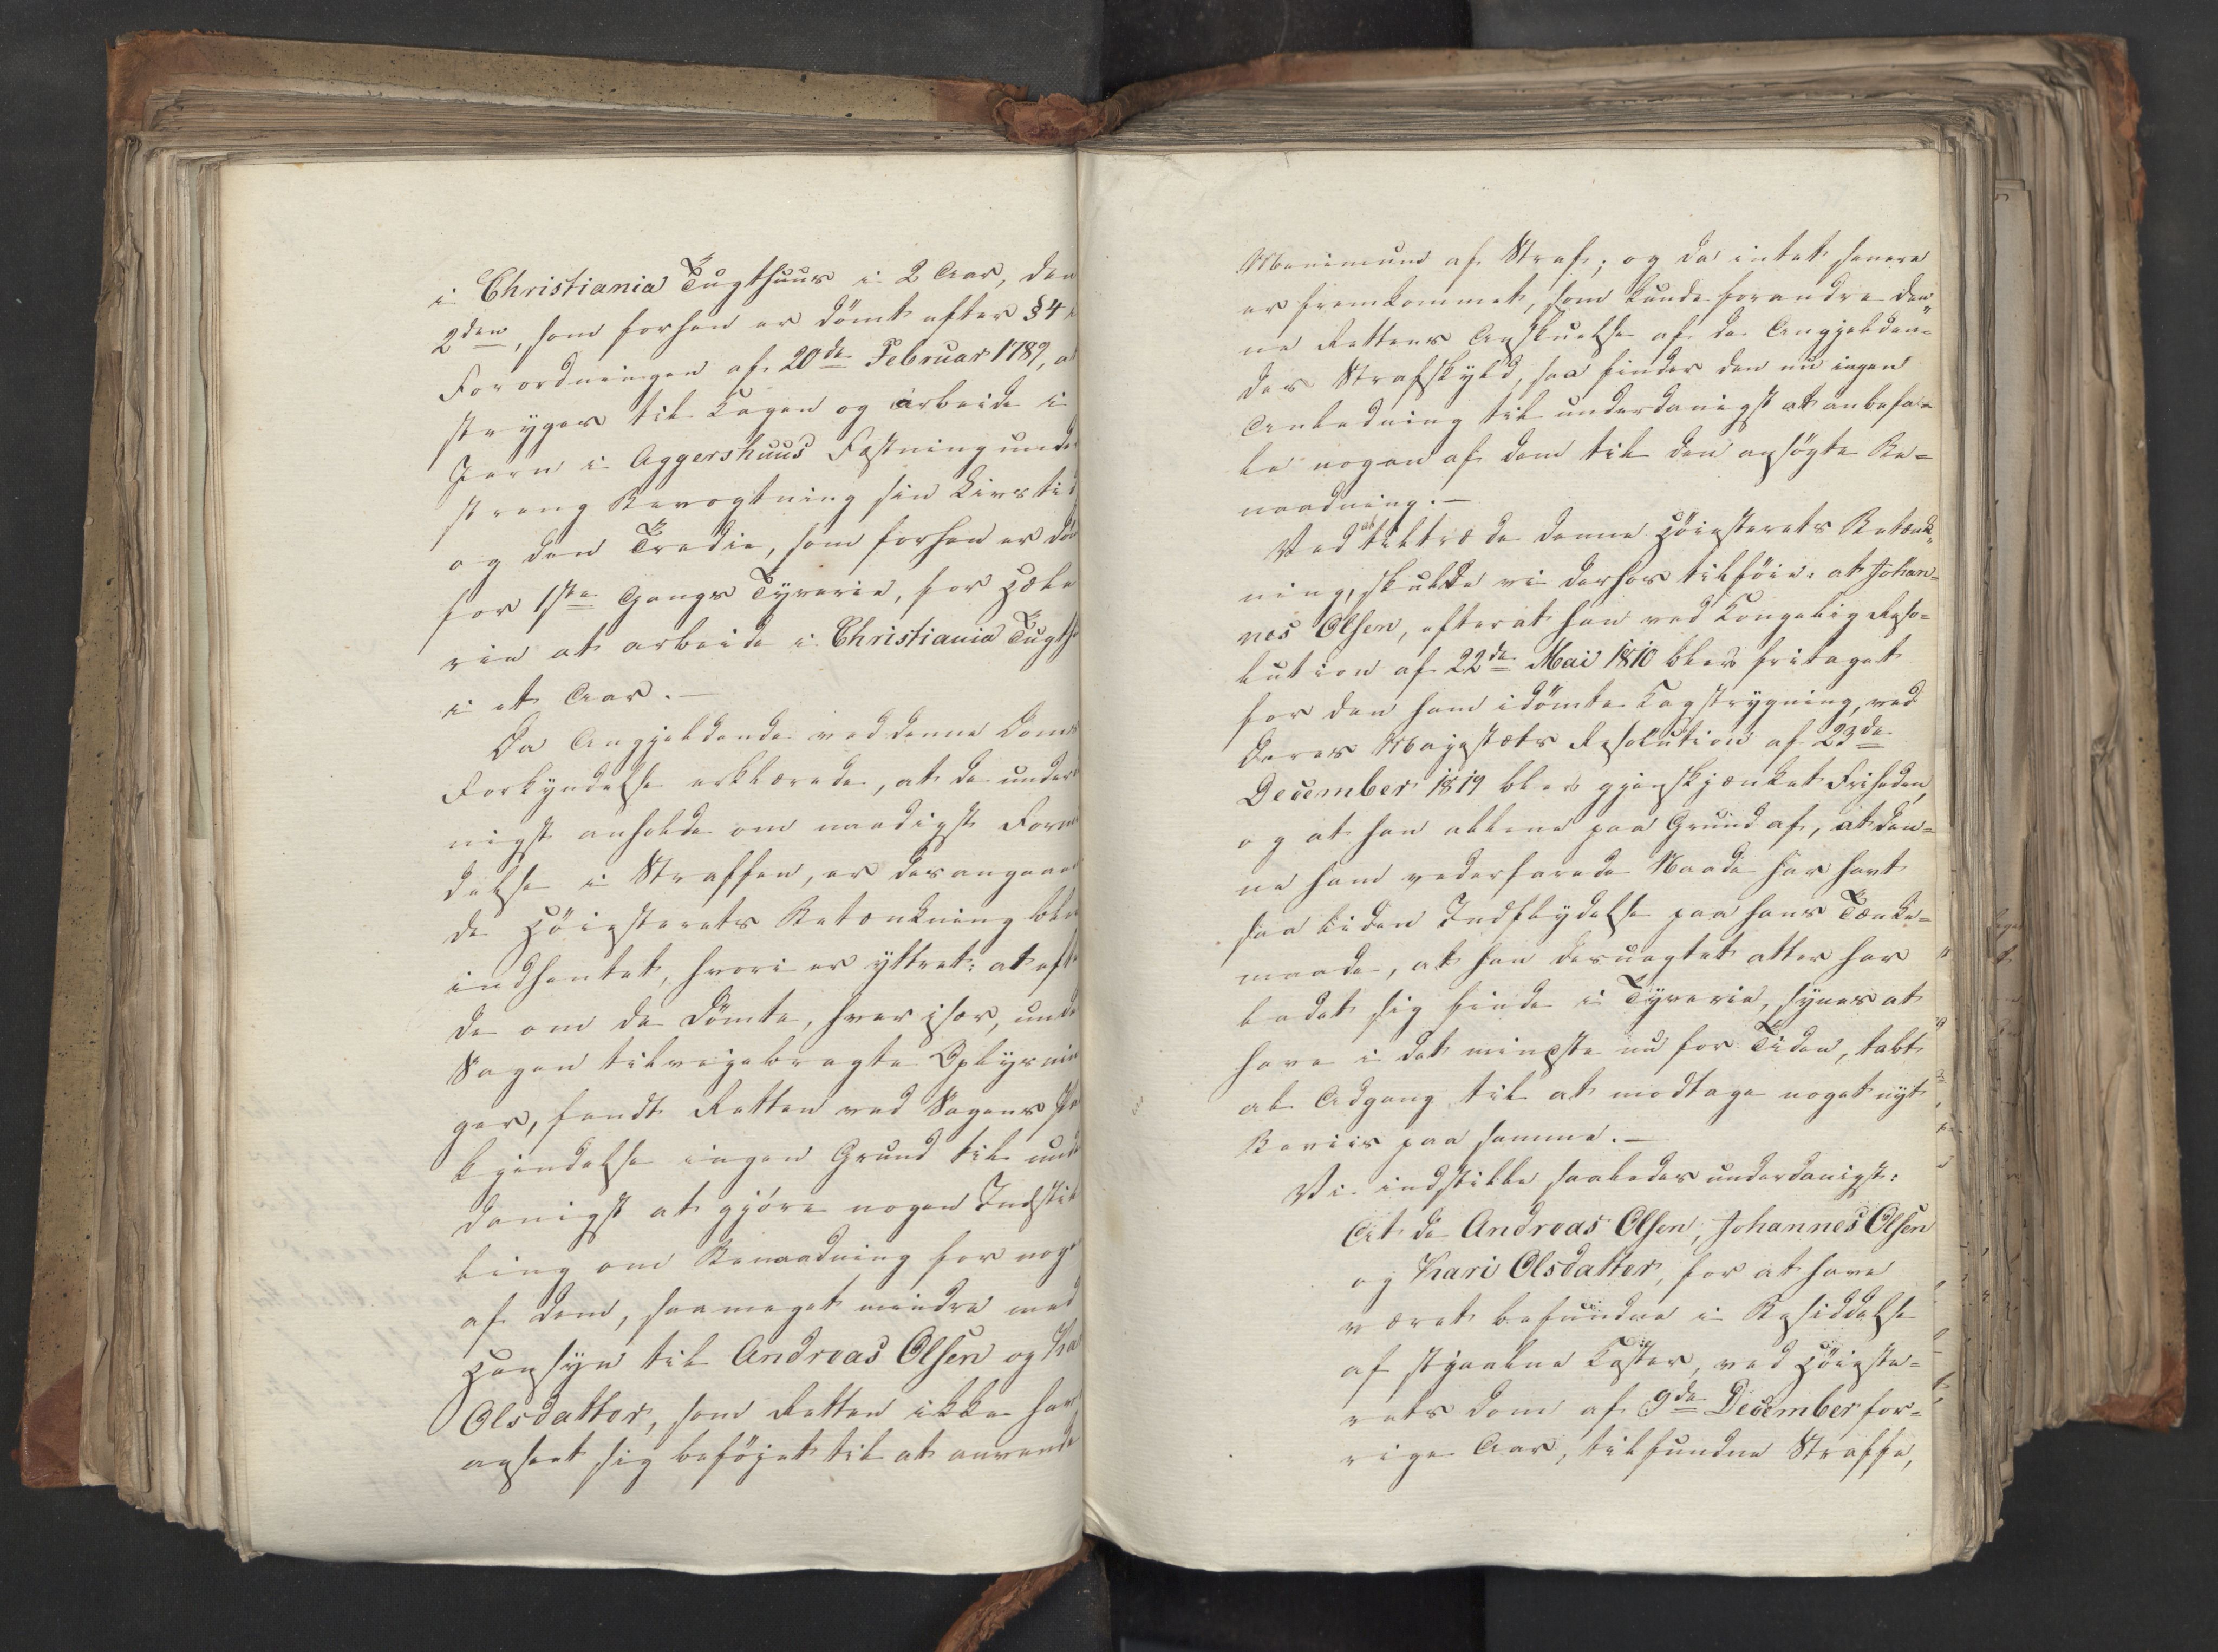 i Christiania Tugthuus i 2 Aar, den
2den, som forhen er dömt efter § 4 i
Forordningen af 20de Februar 1789, at
stryges til Kagen og arbeide i
Jern i Aggershuus Fæstning under
streng Bevogtning sin Livstid
og den Tredie, som forhen er dömt
for 1ste Gangs Tyverie, for Hæle
rie at arbeide i Christiania Tugth
i et Aar. —
Da Angjeldende ved denne Doms
Forkyndelse erklærede, at de underda
nigst anholde om naadigst Formil
delse i Straffen, er desangaaen
de Höiesterets Betænkning bleven
indhentet, hvori er yttret: at efter
de om de Dömte, hver især, under
Sagen tilveiebragte Oplysnin
ger, fandt Retten ved Sagens Paa
kjendelse ingen Grund til under
danigst at gjöre nogen Indstil
ling om Benaadning for nogen
af dem, saameget mindre med
Hensyn til Andreas Olsen og Kari
Olsdatter, som Retten ikke har
anseet sig beföjet til at anvende
Minimum af Straf; og da intet senere
er fremkommet, som kunde forandre den-
ne Rettens Anskuelse af de Angjelden-
des Strafskyld, saa finder den nu ingen
Anledning til underdanigst at anbefa-
le nogen af dem til den ansögte Be-
naadning. —
Ved at tiltræde denne Höiesterets Betænk-
ning, skulde vi derhos tilföie: at Johan-
nes Olsen, efterat han ved Kongelig Reso-
lution af 22de Mai 1810 blev fritaget
for den ham idömte Kagstrygning, ved
Deres Majestæts Resolution af 23de
December 1819 blev gjenskjænket Friheden,
og at han allene paa Grund af, at den-
ne ham vederfarede Naade har havt
saa liden Indflydelse paa hans Tænke-
maade, at han desuagtet atter har
ladet sig finde i Tyverie, synes at
have i det mindste nu for Tiden, tabt
al Adgang til at modtage noget nyt
Beviis paa samme. —
Vi indstille saaledes underdanigst:
At de Andreas Olsen, Johannes Olsen
og Kari Olsdatter, for at have
været befundne i Besiddelse
af stjaalne Koster, ved Höieste-
rets Dom af 9de December for-
rige Aar, tilfundne Straffe,